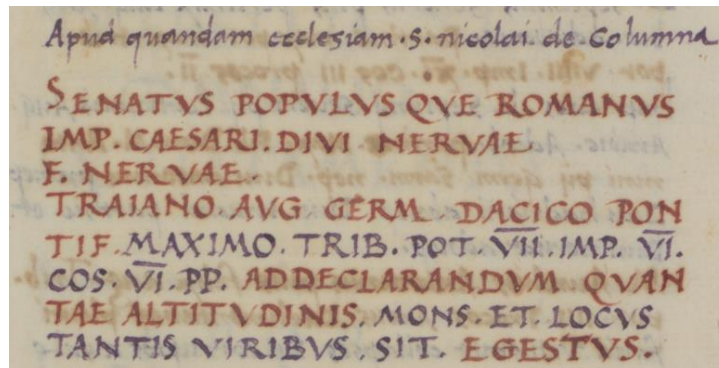 Apud quandam ecclesiam · S · nicolai de Columna
SENATVS POPVLVS QVE ROMANVS
IMP. CAESARI. DIVI NERVAE.
F. NERVAE.
TRAIANO. AVG GERM. DACICO PON
TIF. MAXIMO. TRIB. POT V̅I̅I̅. IMP. V̅I̅.
COS. V̅I̅. PP. ADDECLARANDVM QVAN
TAE ALTITVDINIS. MONS. ET. LOCVS
TANTIS VIRIBVS. SIT. EGESTVS.